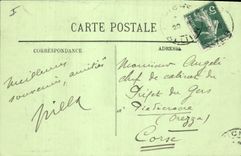 CARTE POSTALE
CORRESPONDANCE
ADRESSE
Meilleurs
souvenirs, amitiés
Monsieur Angeli
chef de cabinet du
Préfet du Gers
à
(Orezza)
Corse